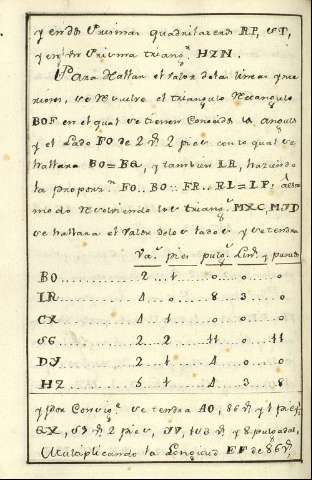 y en dos Prismas quadrilateros RP, ST,
y en un Prisma triang.r HZN.
Para hallar el valor de la lineas
riores, se resuelve el triangulo Rectangulo
BOF en el qual se tienen Conocidos los angulos
y el Lado FO de 2 v.s 2 pies con lo qual se
hallara BO=BQ, y tambien LR, haziendo
la proporz.n FO..BO::FR..RL=LP; à este
modo resolviendo los triang.s MXC, MJD
se hallara el valor de los lados y se tendra
Va.s pies pulg.s Lin.s y puntos
BO 2 1 0 0 0
LR 1 0 8 3 0
CX 1 1 0 0 0
SG 2 2 11 0 11
DJ 2 1 4 0 0
HZ 5 1 4 3 8
y por Consig.te se tendra AO, 86 v.s y 1 pie,
2 pies, 8 pulgadas,
Multiplicando la Longitud EF de 86 v.s